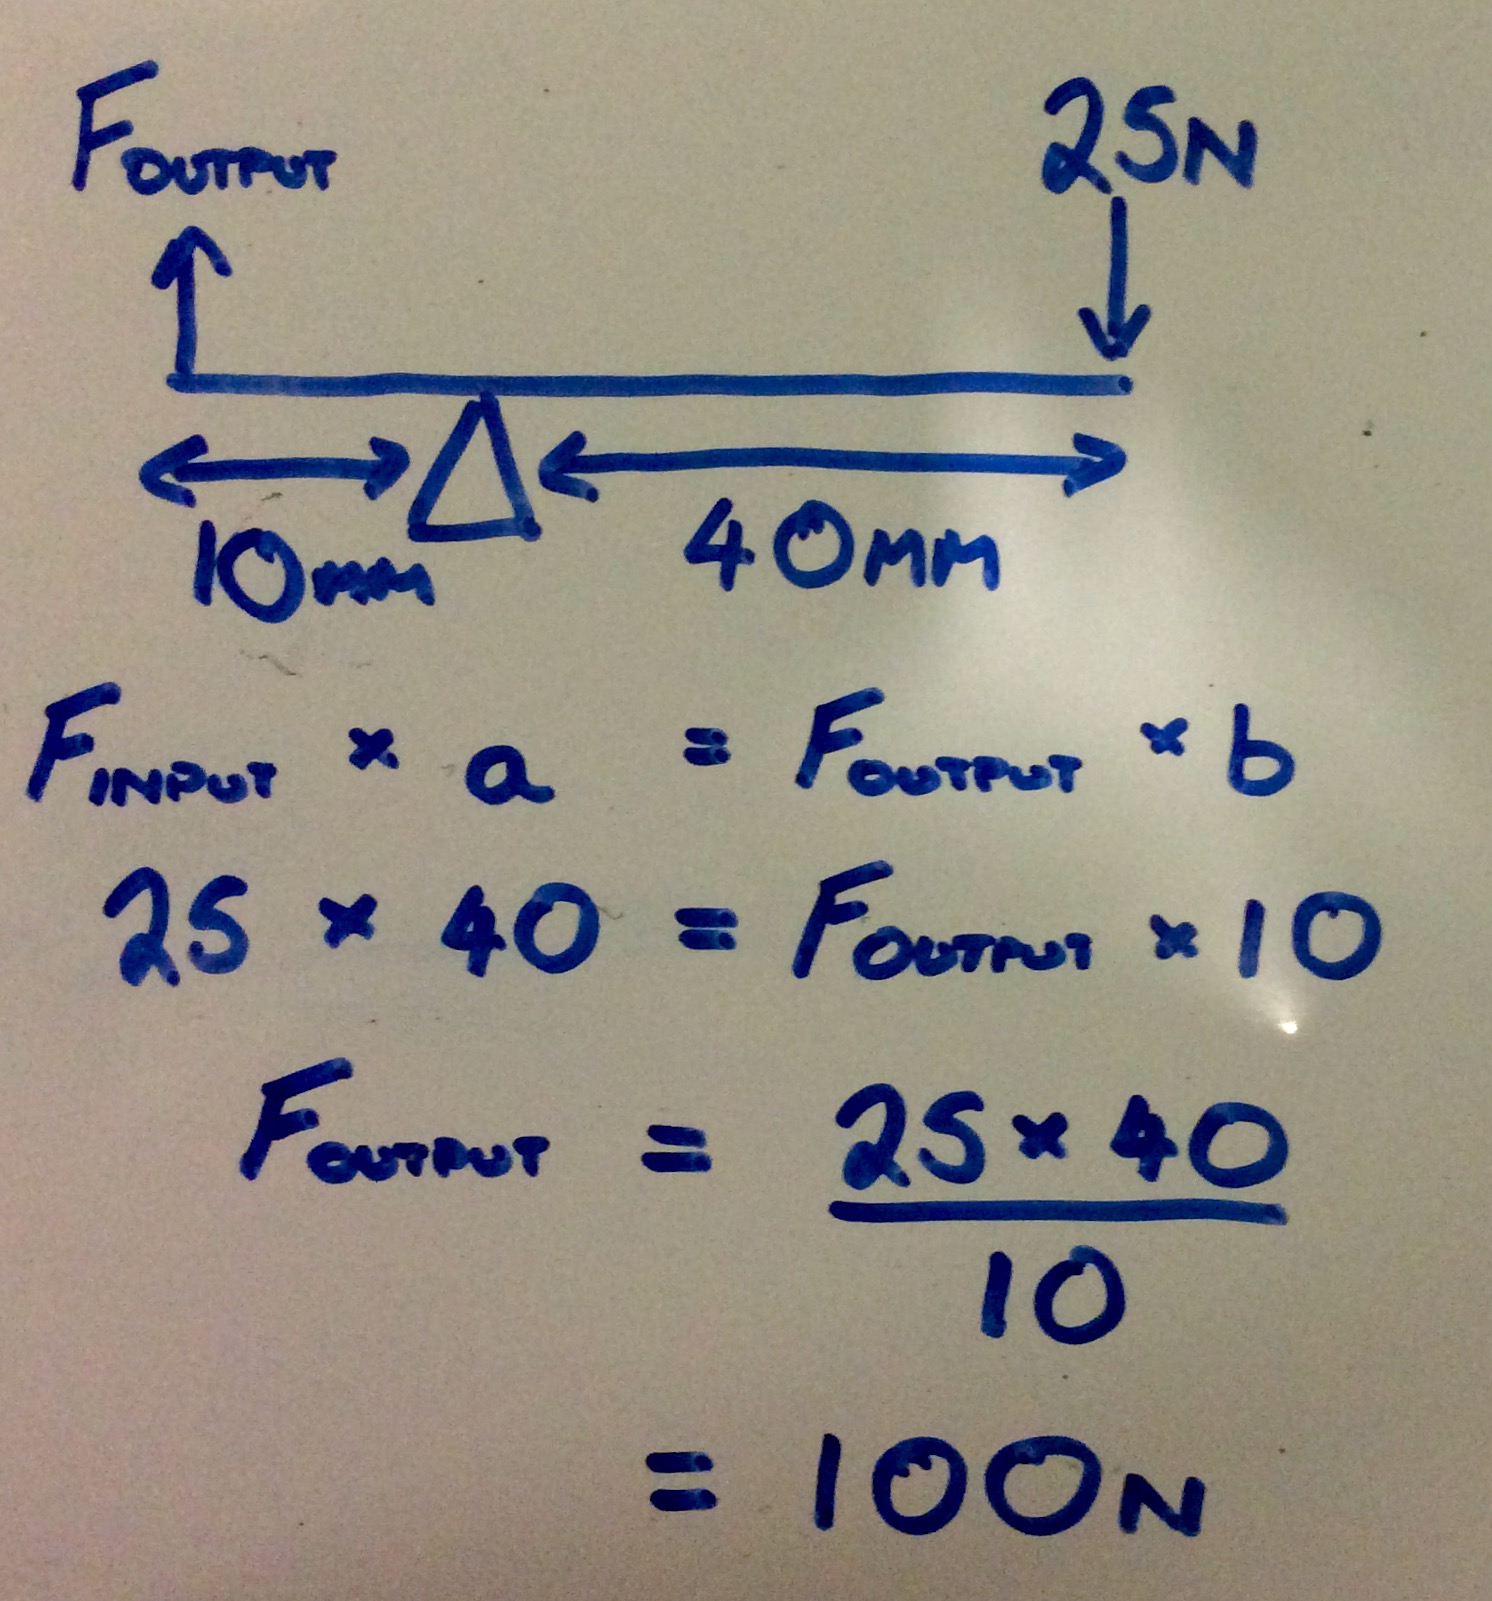 FOUTPUT 25N
10MM 40MM
FINPUT × a = FOUTPUT × b
25 × 40 = FOUTPUT × 10
FOUTPUT = 25 × 40
10
= 100N